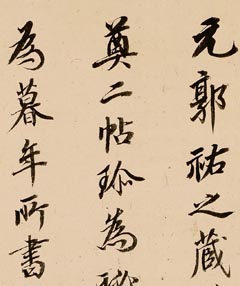 元郭祐之藏
奠二帖珎為
為暮年所書